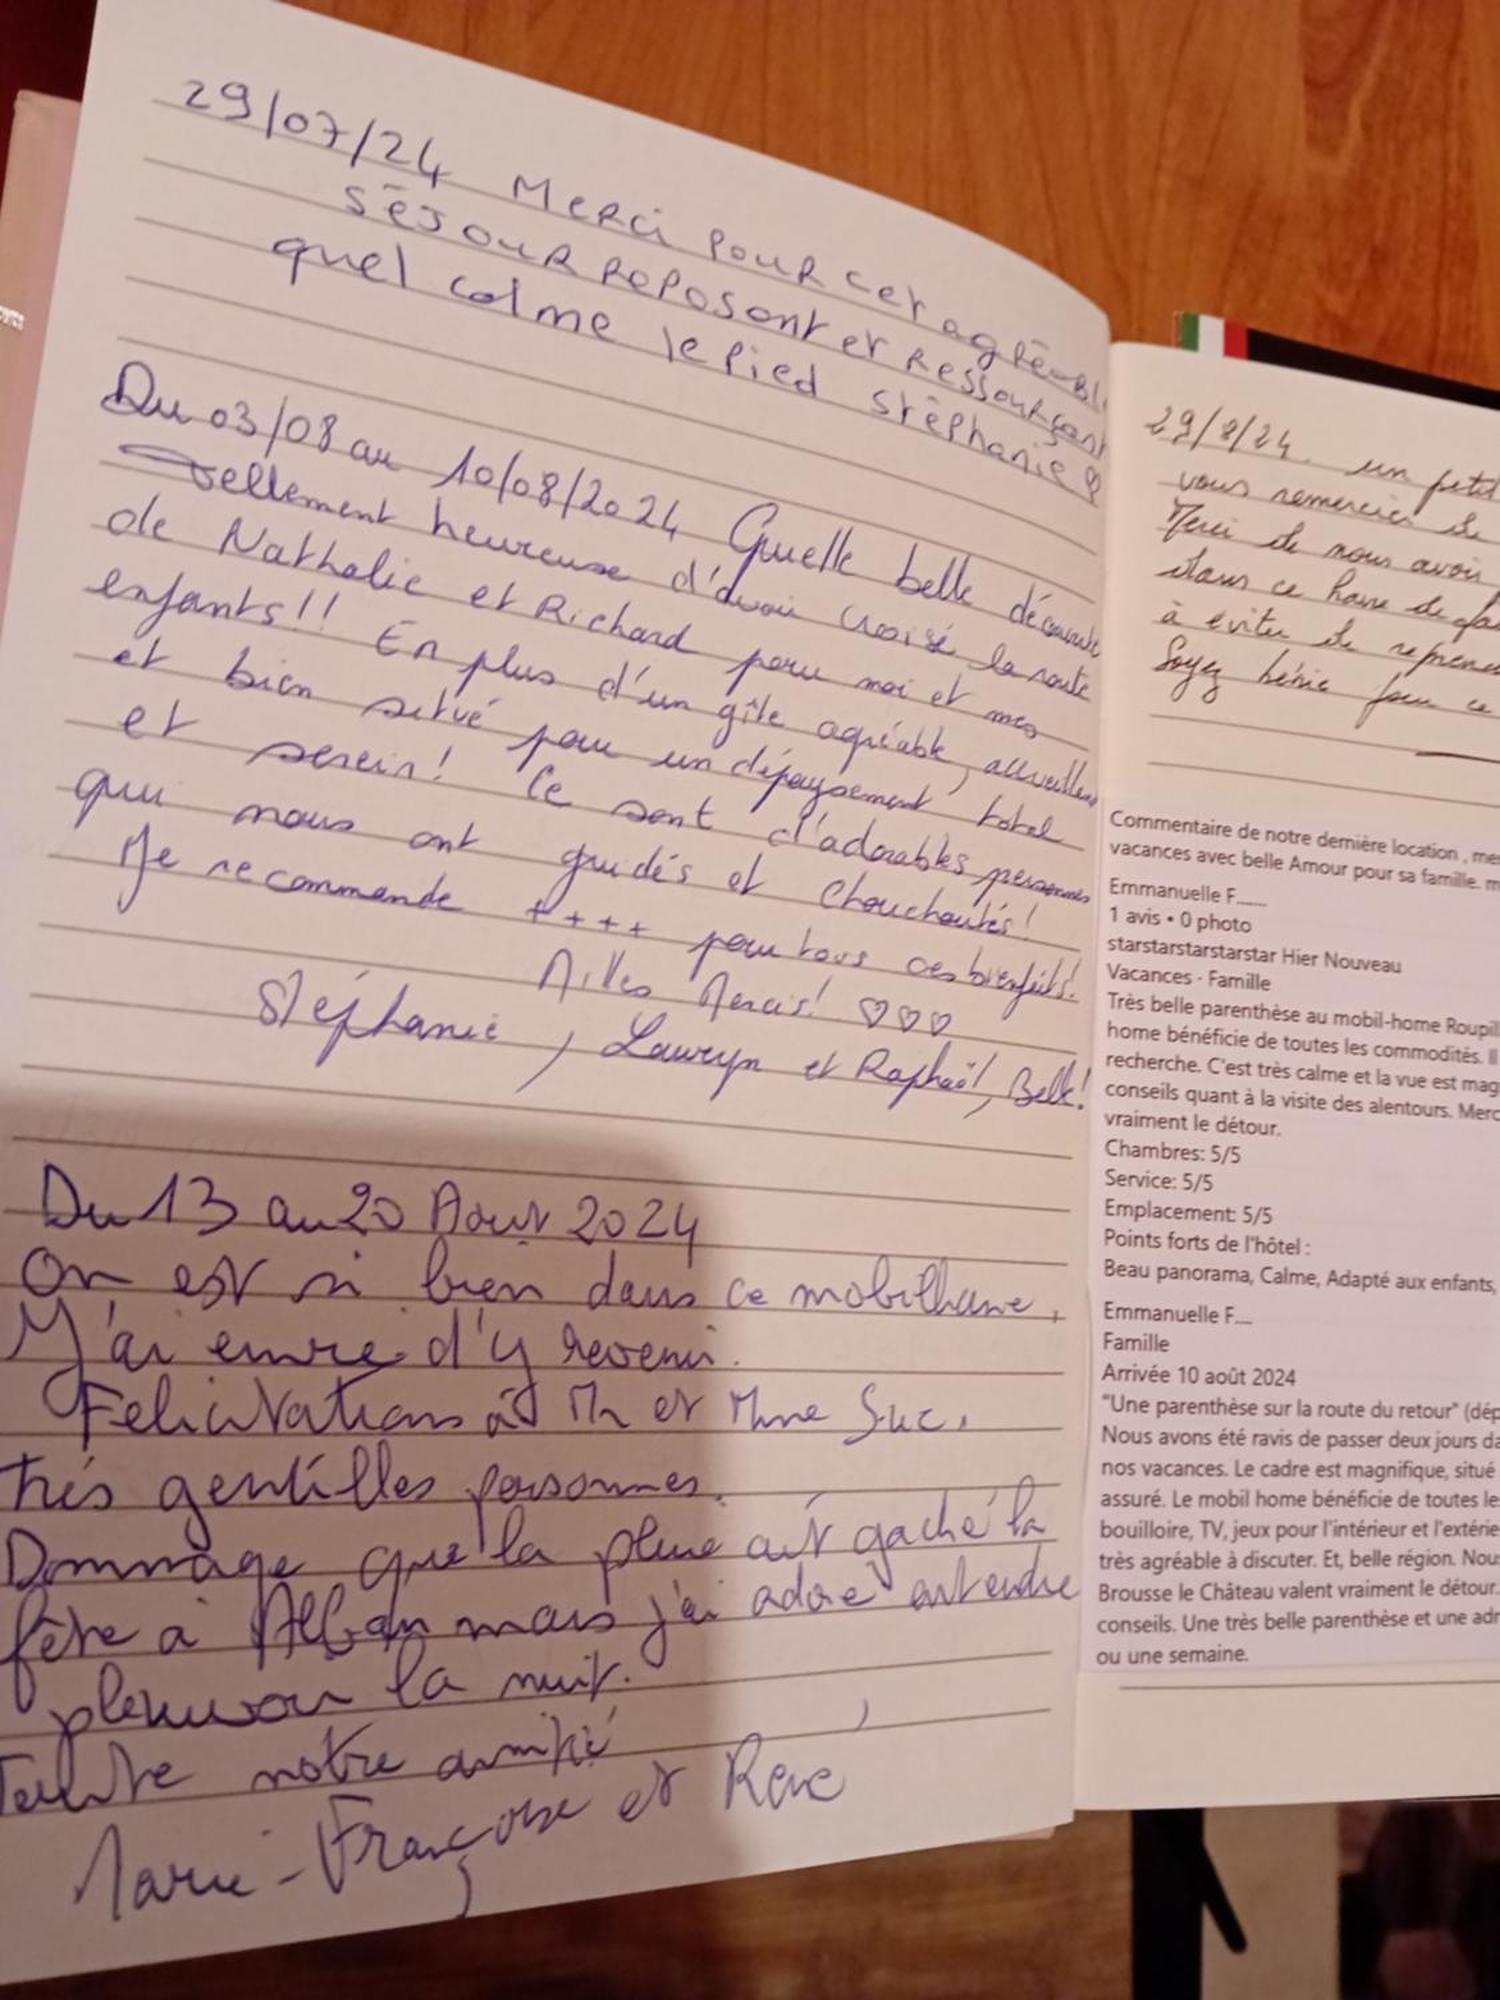 29/07/24 Merci pour cet agréabl
séjour reposant et ressourçant
quel calme le pied stéphanie
Du 03/08 au 10/08/2024 Quelle belle découverte
tellement heureuse d'avoir croisé la route
de Nathalie et Richard pour moi et mes
enfants!! En plus d'un gîte agréable, accueillant
et bien situé pour un dépaysement total
et serein! Ce sont d'adorables personnes
qui nous ont guidés et chouchoutés!
Je recommande ++++ pour tous ces bienfaits!
Milles Mercis! ♡♡♡
Stéphanie, Lauryn et Raphaël, Bella!
Du 13 au 20 Août 2024
On est si bien dans ce mobilhome,
J'ai envie d'y revenir.
Felicitations à Mr et Mme Suc,
très gentilles personnes.
Dommage que la pluie ait gaché la
fête à Alban mais j'ai adoré entendre
pleuvoir la nuit.
Toute notre amitié
Marie-Françoise et René
29/8/24. un petit
vous remercier de
Merci de nous avoir
dans ce havre de
à éviter de
Soyez bénie pour ce
Commentaire de notre dernière location , mes
vacances avec belle Amour pour sa famille. m
Emmanuelle F......
1 avis • 0 photo
starstarstarstarstar Hier Nouveau
Vacances - Famille
Très belle parenthèse au mobil-home Roupil
home bénéficie de toutes les commodités. Il
recherche. C'est très calme et la vue est mag
conseils quant à la visite des alentours. Merc
vraiment le détour.
Chambres: 5/5
Service: 5/5
Emplacement: 5/5
Points forts de l'hôtel :
Beau panorama, Calme, Adapté aux enfants,
Emmanuelle F....
Famille
Arrivée 10 août 2024
"Une parenthèse sur la route du retour" (dép
Nous avons été ravis de passer deux jours da
nos vacances. Le cadre est magnifique, situé
assuré. Le mobil home bénéficie de toutes les
bouilloire, TV, jeux pour l'intérieur et l'extérie
très agréable à discuter. Et, belle région. Nous
Brousse le Château valent vraiment le détour.
conseils. Une très belle parenthèse et une adr
ou une semaine.